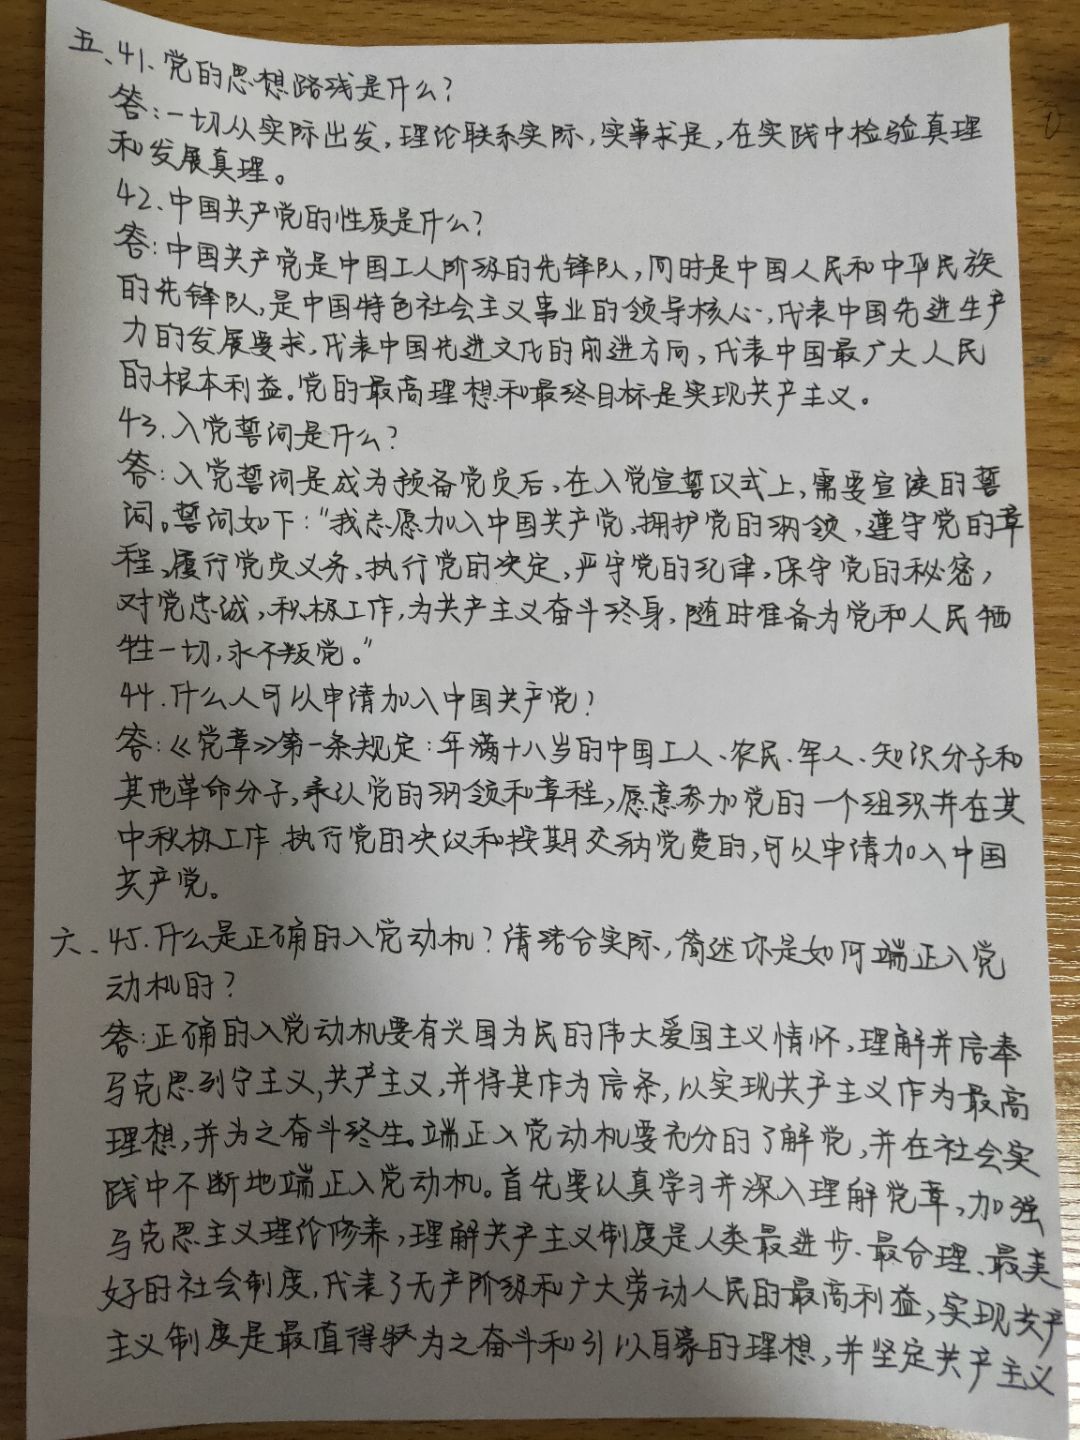 五、41.党的思想路线是什么?
答:一切从实际出发,理论联系实际,实事求是,在实践中检验真理
和发展真理。
42.中国共产党的性质是什么?
答:中国共产党是中国工人阶级的先锋队,同时是中国人民和中华民族
的先锋队,是中国特色社会主义事业的领导核心,代表中国先进生产
力的发展要求,代表中国先进文化的前进方向,代表中国最广大人民
的根本利益。党的最高理想和最终目标是实现共产主义。
43.入党誓词是什么?
答:入党誓词是成为预备党员后,在入党宣誓仪式上,需要宣读的誓
词。誓词如下:“我志愿加入中国共产党,拥护党的纲领,遵守党的章
程,履行党员义务,执行党的决定,严守党的纪律,保守党的秘密,
对党忠诚,积极工作,为共产主义奋斗终身,随时准备为党和人民牺
牲一切,永不叛党。”
44.什么人可以申请加入中国共产党?
答:《党章》第一条规定:年满十八岁的中国工人、农民、军人、知识分子和
其他革命分子,承认党的纲领和章程,愿意参加党的一个组织并在其
中积极工作 执行党的决议和按期交纳党费的,可以申请加入中国
共产党。
六、45.什么是正确的入党动机?请结合实际,简述你是如何端正入党
动机的?
答:正确的入党动机要有兴国为民的伟大爱国主义情怀,理解并信奉
马克思列宁主义,共产主义,并将其作为信条,以实现共产主义作为最高
理想,并为之奋斗终生。端正入党动机要充分的了解党,并在社会实
践中不断地端正入党动机。首先要认真学习并深入理解党章,加强
马克思主义理论修养,理解共产主义制度是人类最进步、最合理、最美
好的社会制度,代表了无产阶级和广大劳动人民的最高利益,实现共产
主义制度是最值得为之奋斗和引以自豪的理想,并坚定共产主义